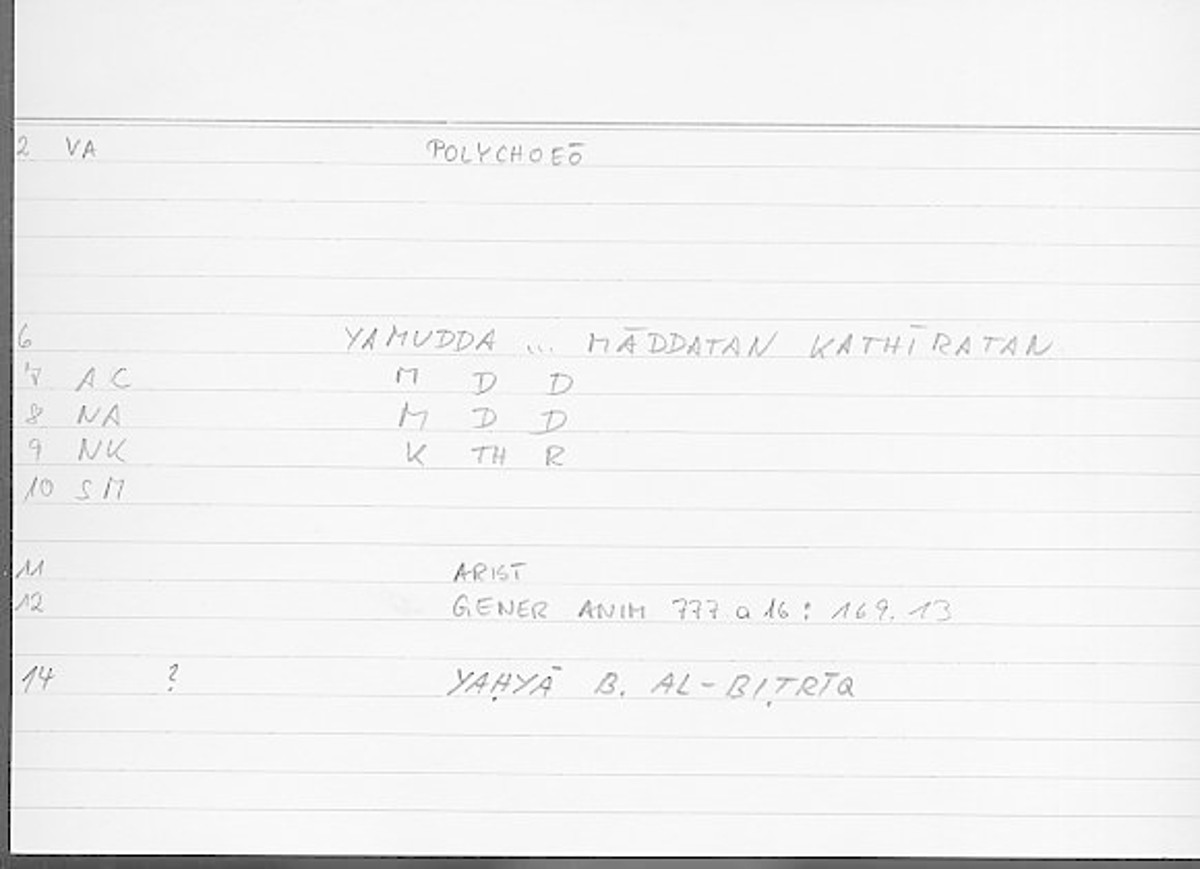 2 VA POLYCHOEŌ
6 YAMUDDA ... MĀDDATAN KATHĪRATAN
7 AC M D D
8 NA M D D
9 NK K TH R
10 SM
11 ARIST
12 GENER ANIM 777 a 16 : 169. 13
14 ? YAḤYĀ B. AL-BIṬRĪQ